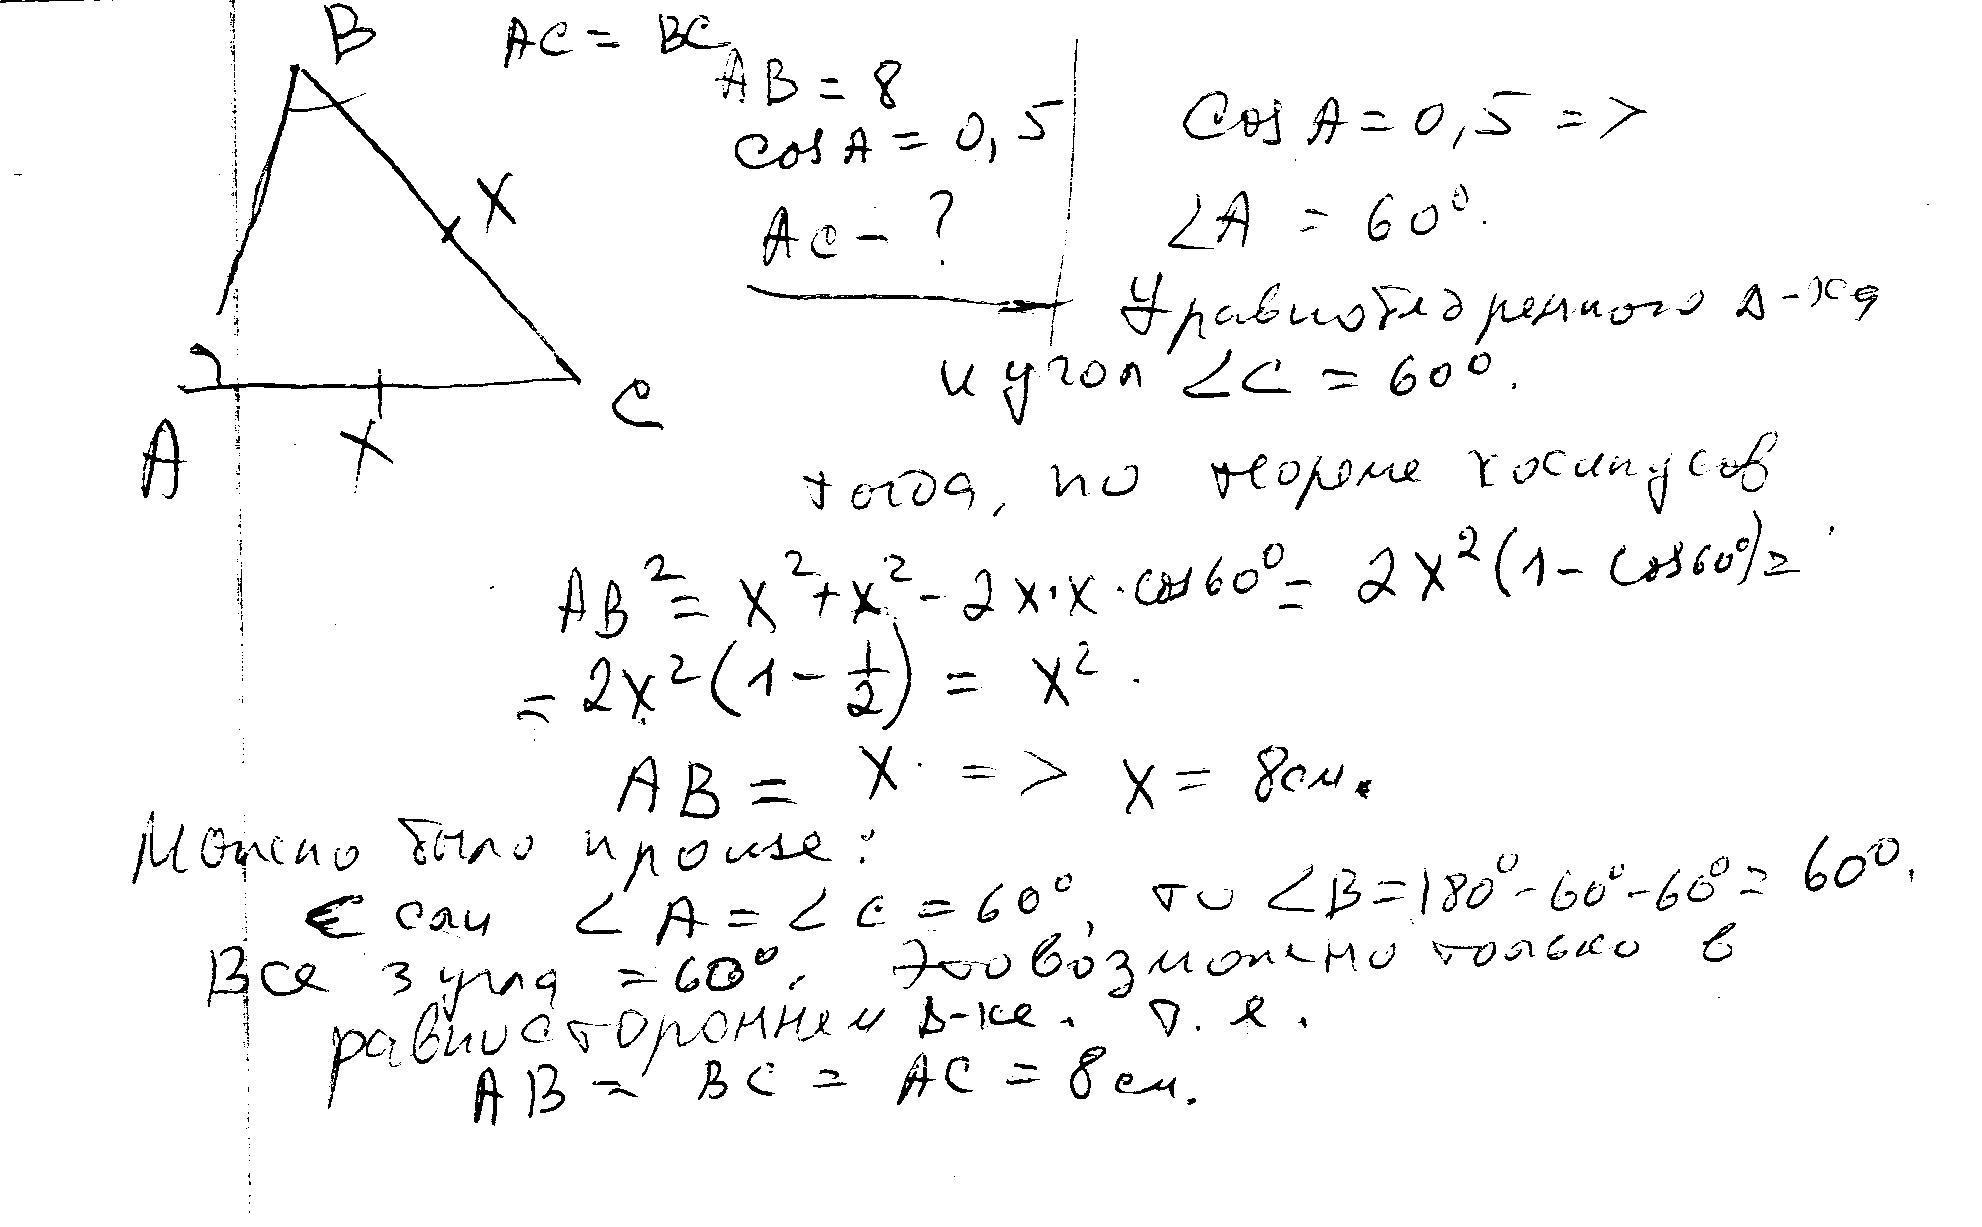 B
AC = BC
AB = 8
cos A = 0,5
AC - ?
X
A
X
C
Cos A = 0,5 =>
∠A = 60°.
У равнобедренного Δ-ка
и угол ∠C = 60°.
тогда, по теореме косинусов
AB² = x² + x² - 2x·x·cos60° = 2x²(1 - cos60°) =
= 2x²(1 - 1/2) = x².
AB = x => x = 8см.
Можно было проще:
Если ∠A = ∠C = 60°, то ∠B = 180° - 60° - 60° = 60°.
Все 3 угла = 60°. Это возможно только в
равностороннем Δ-ке. т.е.
AB = BC = AC = 8 см.